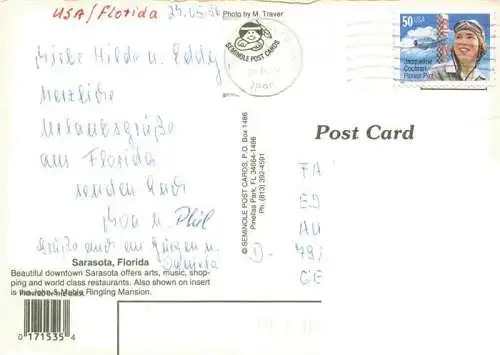 USA/Florida
Photo by M. Traver
SEMINOLE POST CARDS
50 USA
Jacqueline
Cochran
Pioneer Pilot
Liebe Hilde u. Eddy
Herzliche
Urlaubsgrüße
aus Florida
senden Euch
u. Phil
Grüße auch an Jürgen u.
Post Card
© SEMINOLE POST CARDS, P.O. Box 1486
Pinellas Park, FL 34664-1486
Ph. (813) 392-4591
D-
Sarasota, Florida
Beautiful downtown Sarasota offers arts, music, shop-
ping and world class restaurants. Also shown on insert
is the John & Mable Ringling Mansion.
PRINTED IN THE U.S.A.
0 171535 4